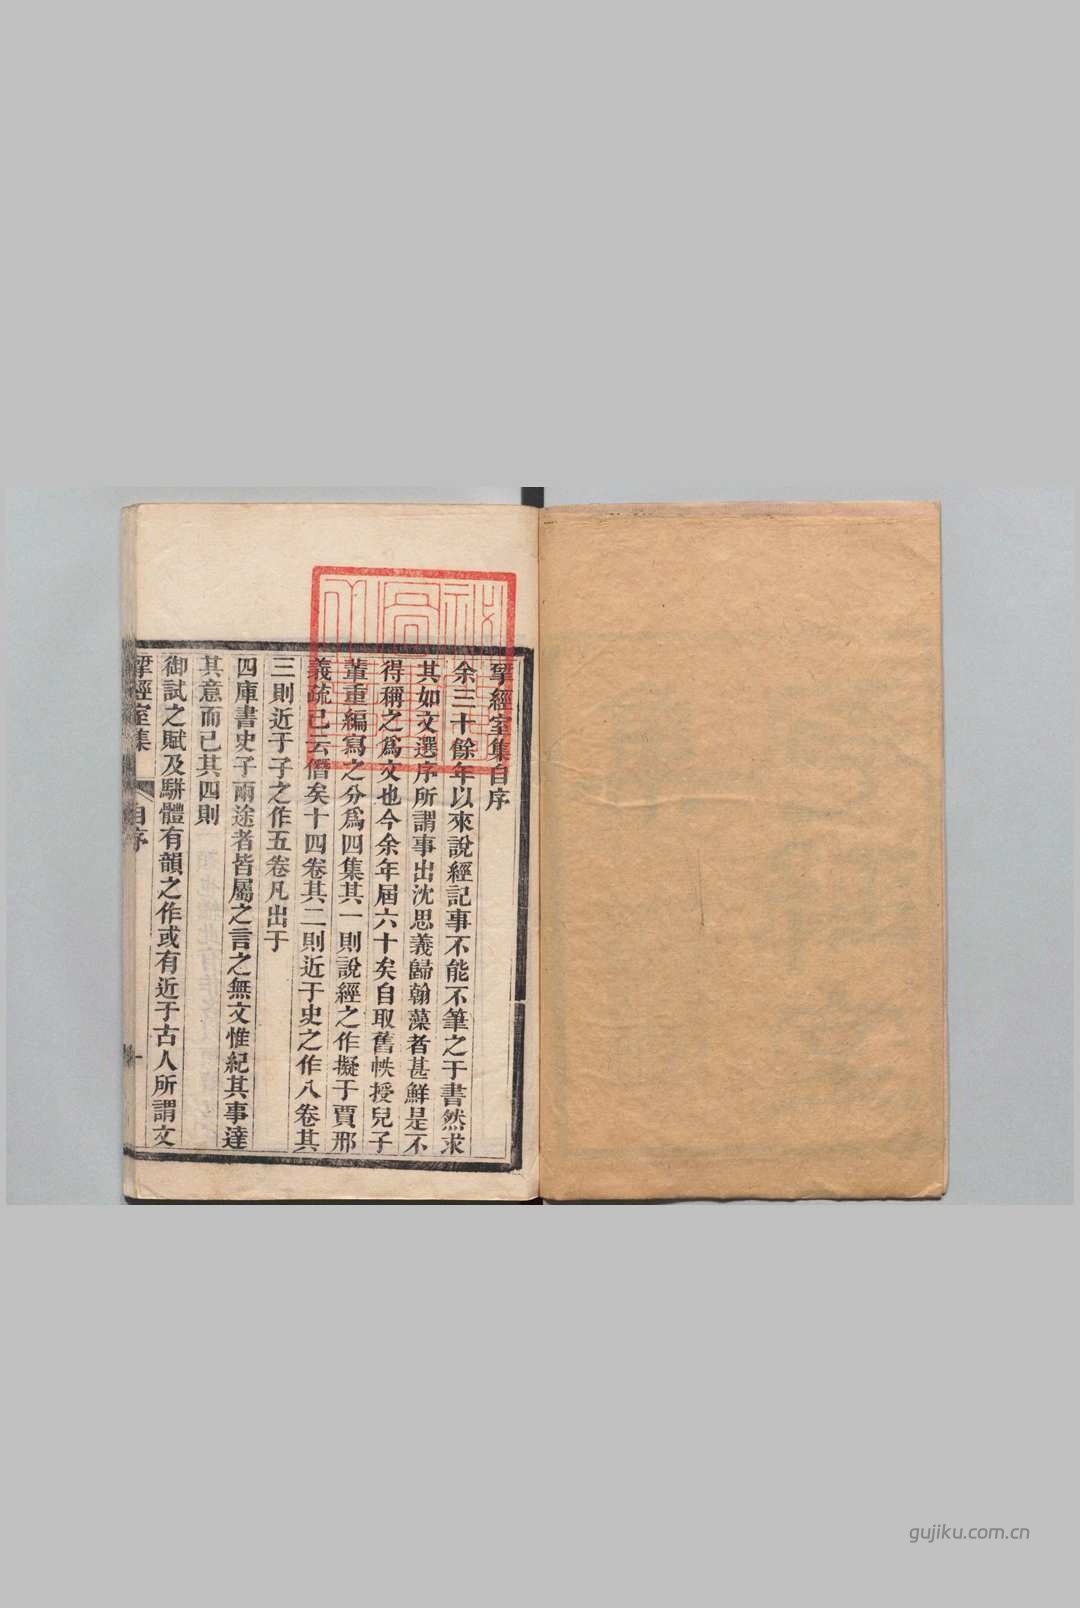 揅經室集自序
余三十餘年以來說經記事不能不筆之于書然求
其如文選序所謂事出沈思義歸翰藻者甚鮮是不
得稱之爲文也今余年屆六十矣自取舊帙授兒子
輩重編寫之分爲四集其一則說經之作擬于賈邢
義疏已云僭矣十四卷其二則近于史之作八卷其
三則近于子之作五卷凡出于
四庫書史子兩途者皆屬之言之無文惟紀其事達
其意而已其四則
御試之賦及駢體有韻之作或有近于古人所謂文
揅經室集
自序
一
gujiku.com.cn